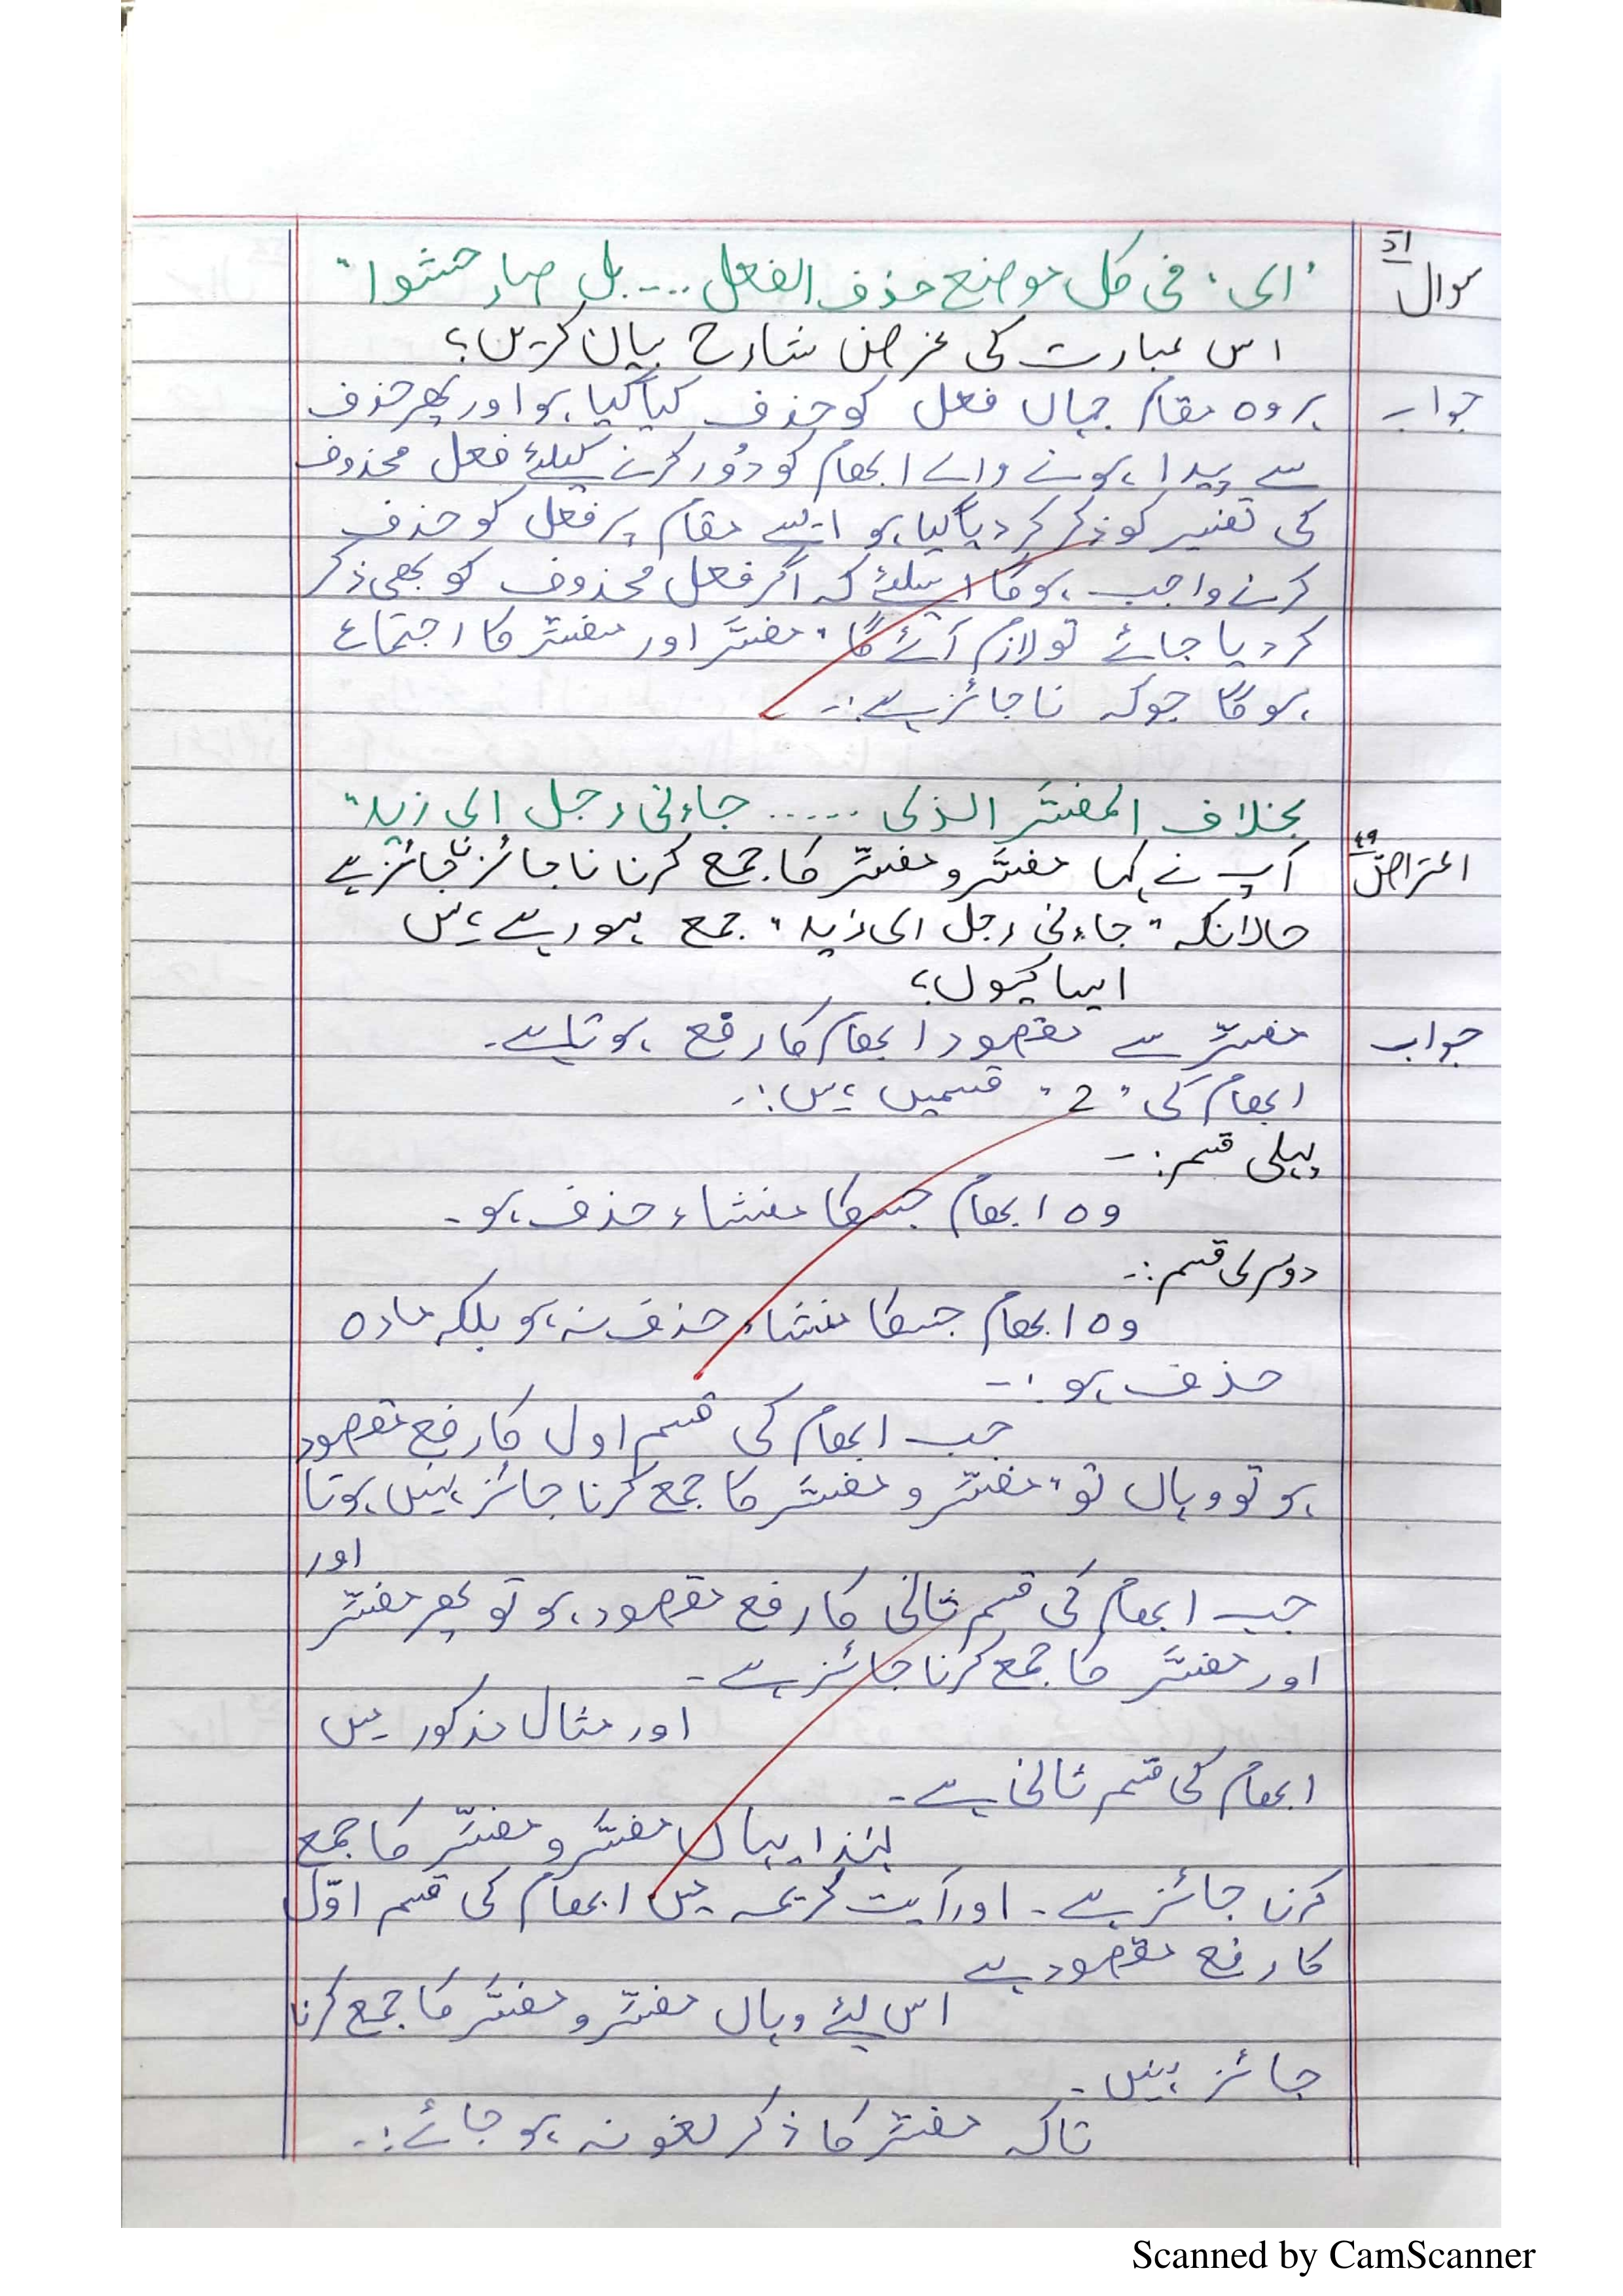 سوال "ای، فی کل موضع حذف الفعل .... بل صار حشوا"
اس عبارت کی غرض شارح بیان کریں؟
جواب ہر وہ مقام جہاں فعل کو حذف کیا گیا ہو اور پھر حذف
سے پیدا ہونے والے ابھام کو دُور کرنے کیلئے فعل محذوف
کی تفسیر کو ذکر کر دیا گیا ہو ایسے مقام پر فعل کو حذف
کرنے واجب ہوگا اسلئے کہ اگر فعل محذوف کو بھی ذکر
کر دیا جائے تو لازم آئے گا "مفسَّر اور مفسِّر کا اجتماع
ہوگا جوکہ ناجائز ہے:۔
بخلاف المفسَّر الذی ..... جاءنی رجل ای زید"
اعتراض ٤٩ آپ نے کہا مفسَّر و مفسِّر کا جمع کرنا ناجائز ناجائز ہے
حالانکہ "جاءنی رجل ای زید" جمع ہو رہے ہیں
ایسا کیوں؟
جواب مفسِّر سے مقصود ابھام کا رفع ہوتا ہے۔
ابھام کی "2" قسمیں ہیں:۔
پہلی قسم:۔
وہ ابھام جسکا منشاء حذف ہو۔
دوسری قسم:۔
وہ ابھام جسکا منشاء حذف نہ ہو بلکہ مادہ
حذف ہو:۔
جب ابھام کی قسم اول کا رفع مقصود
ہو تو وہاں تو "مفسِّر و مفسَّر کا جمع کرنا جائز نہیں ہوتا
اور
جب ابھام کی قسم ثانی کا رفع مقصود ہو تو پھر مفسِّر
اور مفسَّر کا جمع کرنا جائز ہے۔
اور مثال مذکور میں
ابھام کی قسم ثانی ہے۔
لہٰذا یہاں مفسَّر و مفسِّر کا جمع
کرنا جائز ہے۔ اور آیت کریمہ میں ابھام کی قسم اوّل
کا رفع مقصود ہے
اس لیئے وہاں مفسِّر و مفسَّر کا جمع کرنا
جائز نہیں۔
تاکہ مفسِّر کا ذکر لغو نہ ہو جائے:۔
Scanned by CamScanner